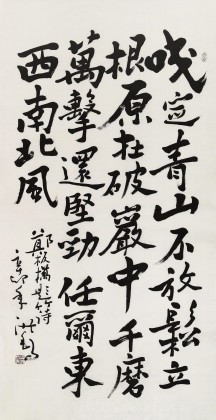 咬定青山不放鬆立
根原在破巖中千磨
萬擊還堅勁任爾東
西南北風
鄭板橋題竹詩